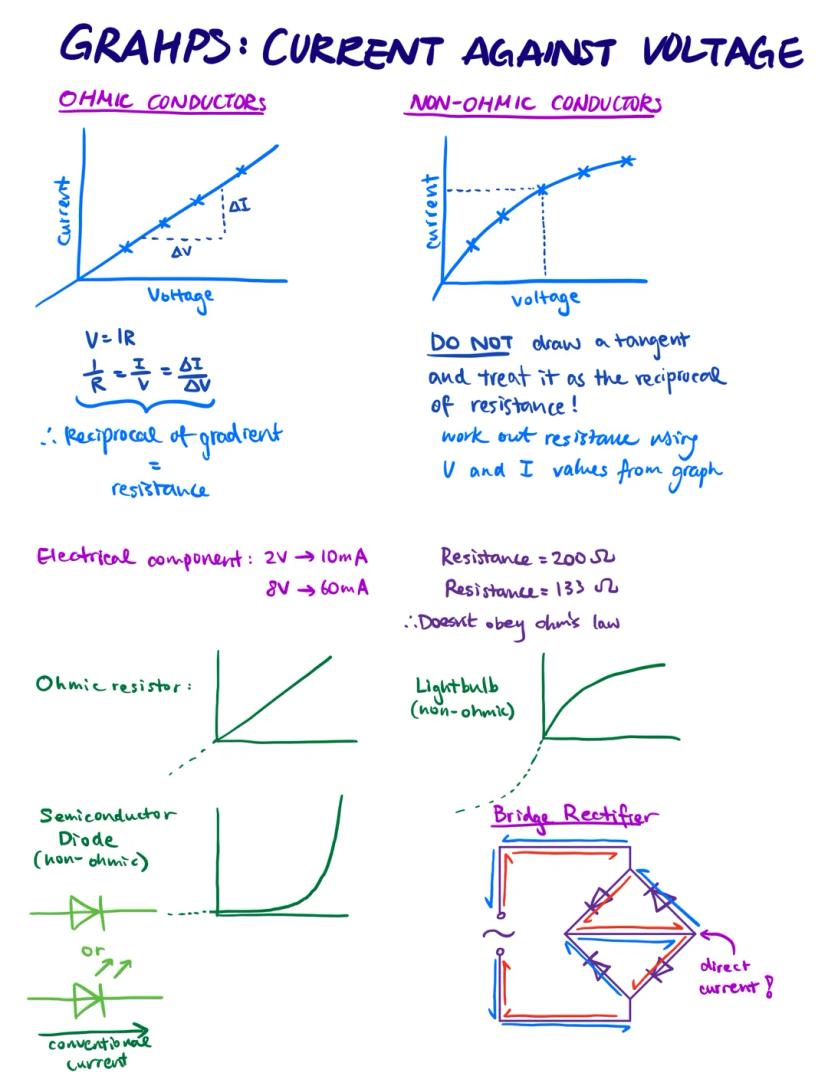 GRAHPS: CURRENT AGAINST VOLTAGE
OHMIC CONDUCTORS
Current
ΔI
ΔV
Voltage
V=IR
1/R = I/V = ΔI/ΔV
∴ Reciprocal of gradient
=
resistance
NON-OHMIC CONDUCTORS
current
voltage
DO NOT draw a tangent
and treat it as the reciprocal
of resistance!
work out resistance using
V and I values from graph
Electrical component: 2V → 10mA
8V → 60mA
Resistance = 200 Ω
Resistance = 133 Ω
∴ Doesn't obey ohm's law
Ohmic resistor:
Lightbulb
(non-ohmic)
Semiconductor
Diode
(non-ohmic)
or
conventional
current
Bridge Rectifier
~
direct
current!